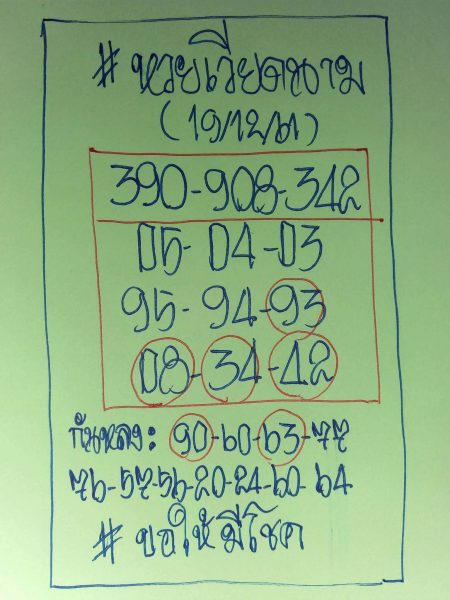 # หวยเวียดนาม
(19/12/61)
390-908-342
05-04-03
95-94-93
08-34-42
กันหลง: 90-60-63-77
76-57-56-20-24-60-64
# ขอให้มีโชค